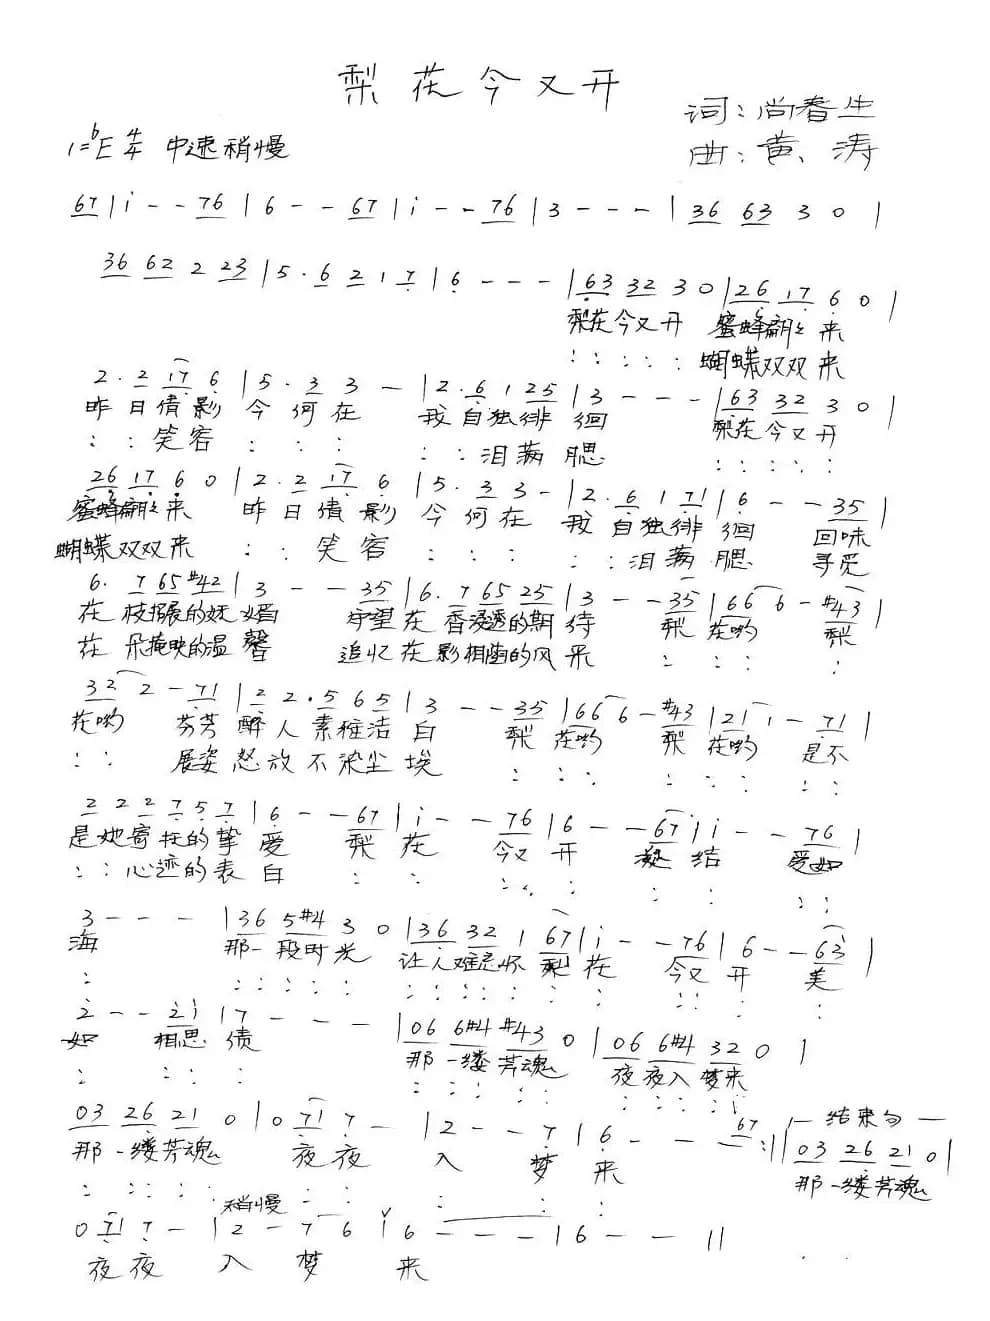 梨花今又开
词:尚春生
1=bE 4/4 中速稍慢
曲:黄涛
67 | i - - 76 | 6 - - 67 | i - - 76 | 3 - - - | 36 63 3 0 |
36 62 2 23 | 5 . 6 2 1 7 | 6 - - - | 63 32 3 0 | 26 17 6 0 |
梨花今又开 蜜蜂翩翩来
: : : : : 蝴蝶双双来
2 . 2 17 6 | 5 . 3 3 - | 2 . 6 1 25 | 3 - - - | 63 32 3 0 |
昨日倩影 今何在 我自独徘徊 梨花今又开
: : 笑容 : : : : : 泪满腮 : : : : :
26 17 6 0 | 2 . 2 17 6 | 5 . 3 3 - | 2 . 6 1 71 | 6 - - 35 |
蜜蜂翩翩来 昨日倩影 今何在 我自独徘徊 回味
蝴蝶双双来 : : 笑容 : : : : : 泪满腮 寻觅
6 . 7 65 #42 | 3 - - 35 | 6 . 7 65 25 | 3 - - 35 | 66 6 - #43 |
在枝撮展的妩媚 守望在香浸透的期待 梨花哟 梨
在朵掩映的温馨 追忆在影相随的风采 : : : :
32 2 - 71 | 2 2 . 5 6 5 | 3 - - 35 | 66 6 - #43 | 21 1 - 71 |
花哟 芬芳醉人素雅洁白 梨花哟 梨花哟 是不
: : 展姿怒放不染尘埃 : : : : : : : :
2 2 2 7 5 7 | 6 - - 67 | i - - 76 | 6 - - 67 | i - - 76 |
是她寄托的挚爱 梨花 今又开 凝结 爱如
: : 心迹的表白 : : : : : : : : :
3 - - - | 36 5#4 3 0 | 36 32 1 67 | i - - 76 | 6 - - 63 |
海 那一段时光 让人难忘怀 梨花 今又开 美
: : : : : : : : : : : : : : : : :
2 - - 21 | 7 - - - | 06 6#4 #43 0 | 06 6#4 32 0 |
如 相思债 那一缕芳魂 夜夜入梦来
: : : : : : : : : : : : : :
03 26 21 0 | 0 71 7 - | 2 - - 7 | 6 - - - 67 :|| — 结束句 — 03 26 21 0 |
那一缕芳魂 夜夜 入 梦 来 那一缕芳魂
: : : : : : : : : :
稍慢
0 71 7 - | 2 - 7 6 | 6 - - - | 6 - - ||
夜夜 入 梦 来